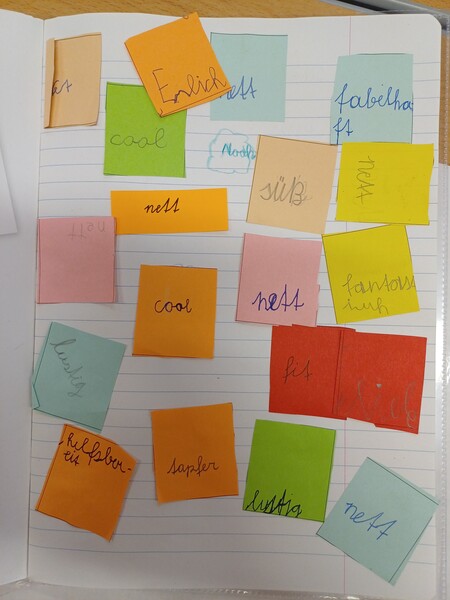 Erlich
nett
fabelha
ft
cool
süß
nett
nett
nett
cool
nett
fantas
lustig
fit
hilfsber-
eit
tapfer
lustig
nett